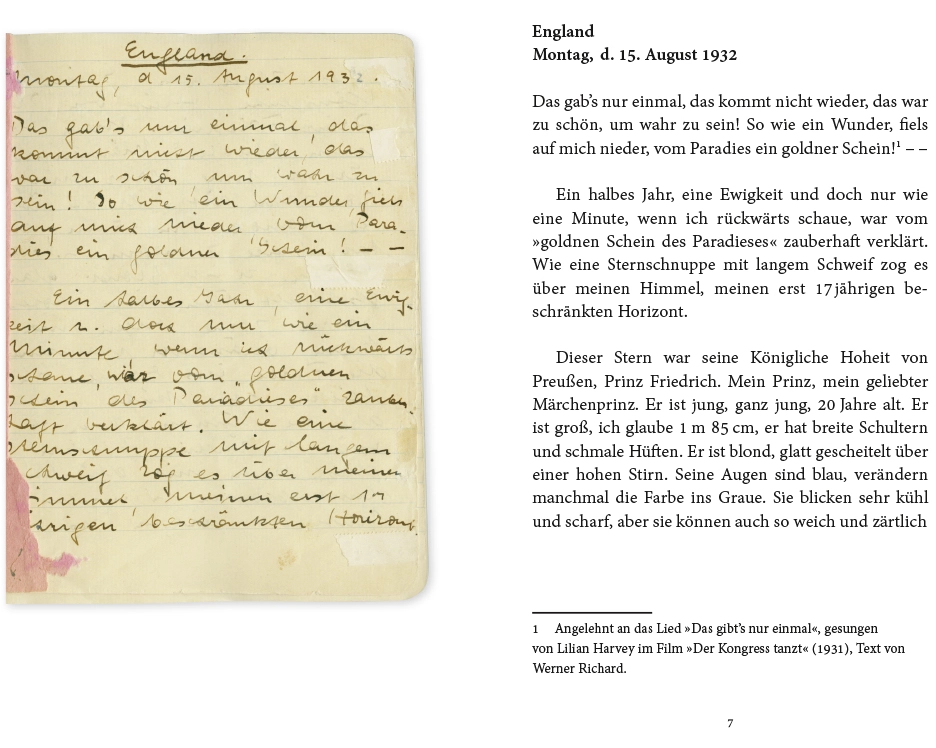 England.
Montag, d 15. August 1932.
Das gab's nur einmal, das
kommt nicht wieder, das
war zu schön um wahr zu
sein! So wie ein Wunder, fiels
auf mich nieder vom Para-
dies ein goldner Schein! – –
Ein halbes Jahr, eine Ewig-
keit u. doch nur wie ein
Minute, wenn ich rückwärts
schaue, war vom „goldnen
Schein des Paradieses" zauber-
haft verklärt. Wie eine
Sternschnuppe mit langem
Schweif zog es über meinen
Himmel, meinen erst 17
jährigen beschränkten Horizont.
England
Montag, d. 15. August 1932
Das gab’s nur einmal, das kommt nicht wieder, das war
zu schön, um wahr zu sein! So wie ein Wunder, fiels
auf mich nieder, vom Paradies ein goldner Schein!¹ – –
Ein halbes Jahr, eine Ewigkeit und doch nur wie
eine Minute, wenn ich rückwärts schaue, war vom
»goldnen Schein des Paradieses« zauberhaft verklärt.
Wie eine Sternschnuppe mit langem Schweif zog es
über meinen Himmel, meinen erst 17jährigen be-
schränkten Horizont.
Dieser Stern war seine Königliche Hoheit von
Preußen, Prinz Friedrich. Mein Prinz, mein geliebter
Märchenprinz. Er ist jung, ganz jung, 20 Jahre alt. Er
ist groß, ich glaube 1 m 85 cm, er hat breite Schultern
und schmale Hüften. Er ist blond, glatt gescheitelt über
einer hohen Stirn. Seine Augen sind blau, verändern
manchmal die Farbe ins Graue. Sie blicken sehr kühl
und scharf, aber sie können auch so weich und zärtlich
1 Angelehnt an das Lied »Das gibt’s nur einmal«, gesungen
von Lilian Harvey im Film »Der Kongress tanzt« (1931), Text von
Werner Richard.
7